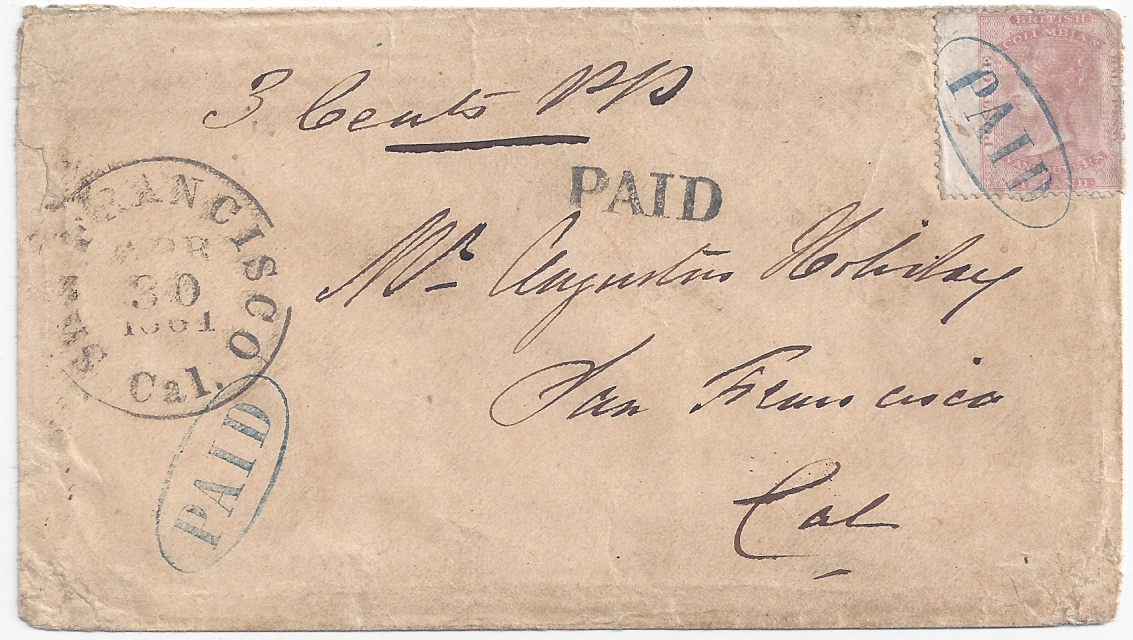 3 Cents PP
BRITISH
COLUMBIA &
PAID
PAID
SAN FRANCISCO
APR
30
1864
Cal.
Mr Augustus
San Francisco
Cal
PAID